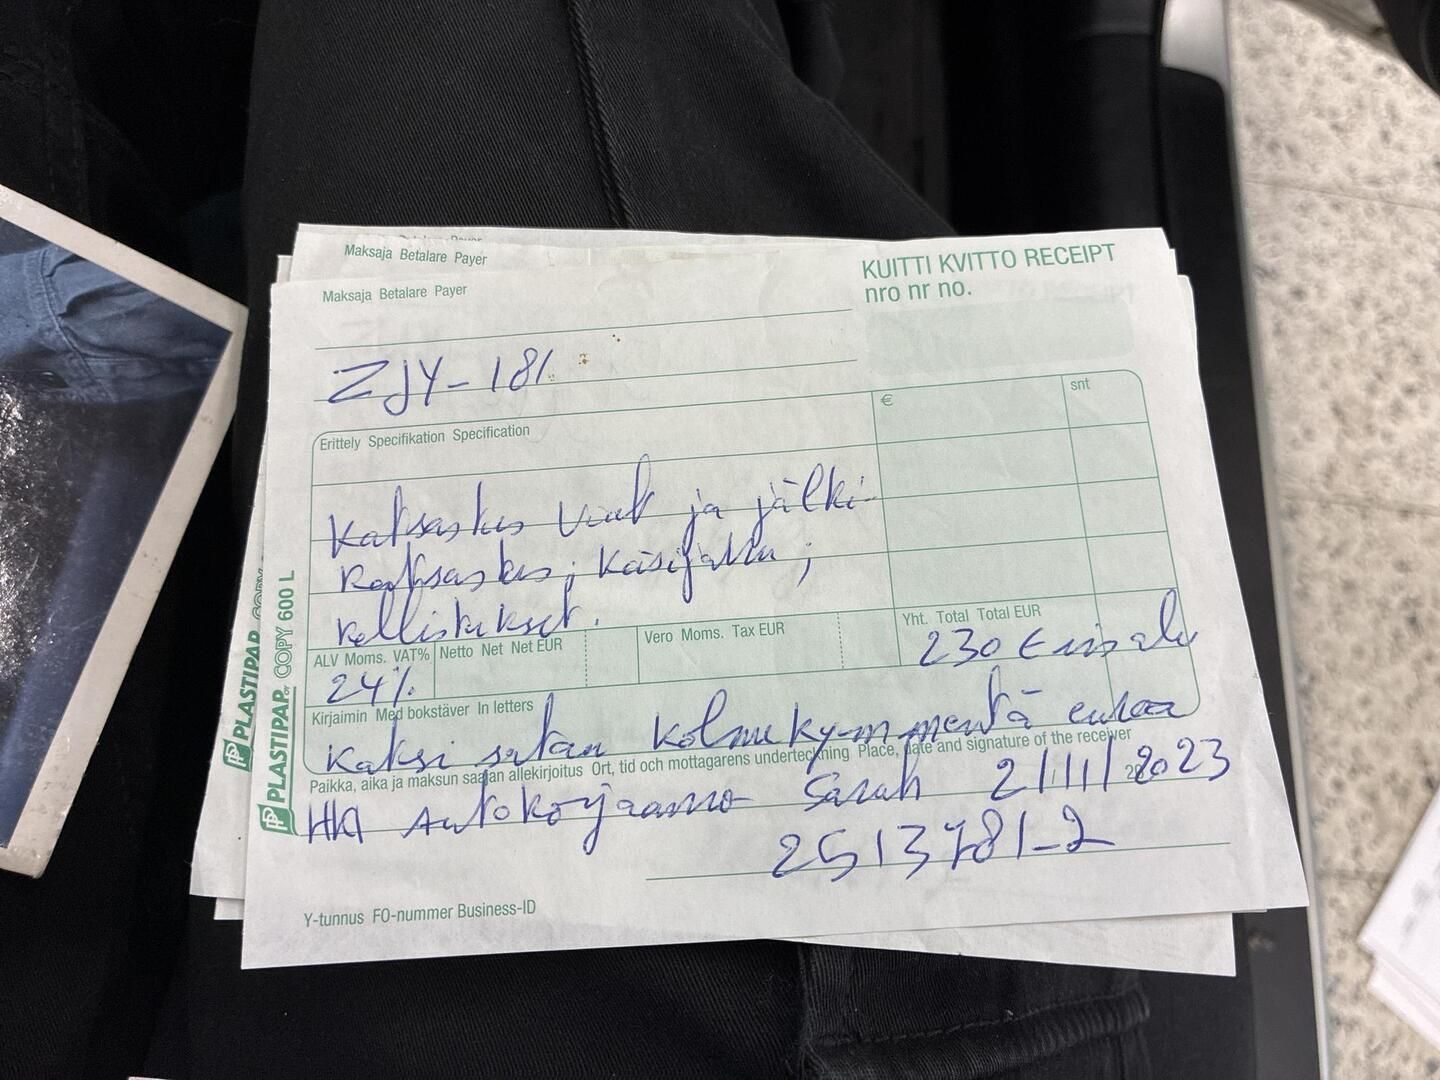 Maksaja Betalare Payer
KUITTI KVITTO RECEIPT
nro nr no.
Maksaja Betalare Payer
ZJY-181
€ snt
Erittely Specifikation Specification
Katsastus ja jälki-
katsastus; käsijarru;
kallistukset.
ALV Moms. VAT% Netto Net Net EUR Vero Moms. Tax EUR Yht. Total Total EUR
24% 230 €
Kirjaimin Med bokstäver In letters
kaksi sataa kolmekymmentä euroa
Paikka, aika ja maksun saajan allekirjoitus Ort, tid och mottagarens underteckning Place, date and signature of the receiver
HKA Autokorjaamo Sarah 2/11/2023
2513781-2
Y-tunnus FO-nummer Business-ID
PLASTIPAP COPY 600 L
PLASTIPAP COPY